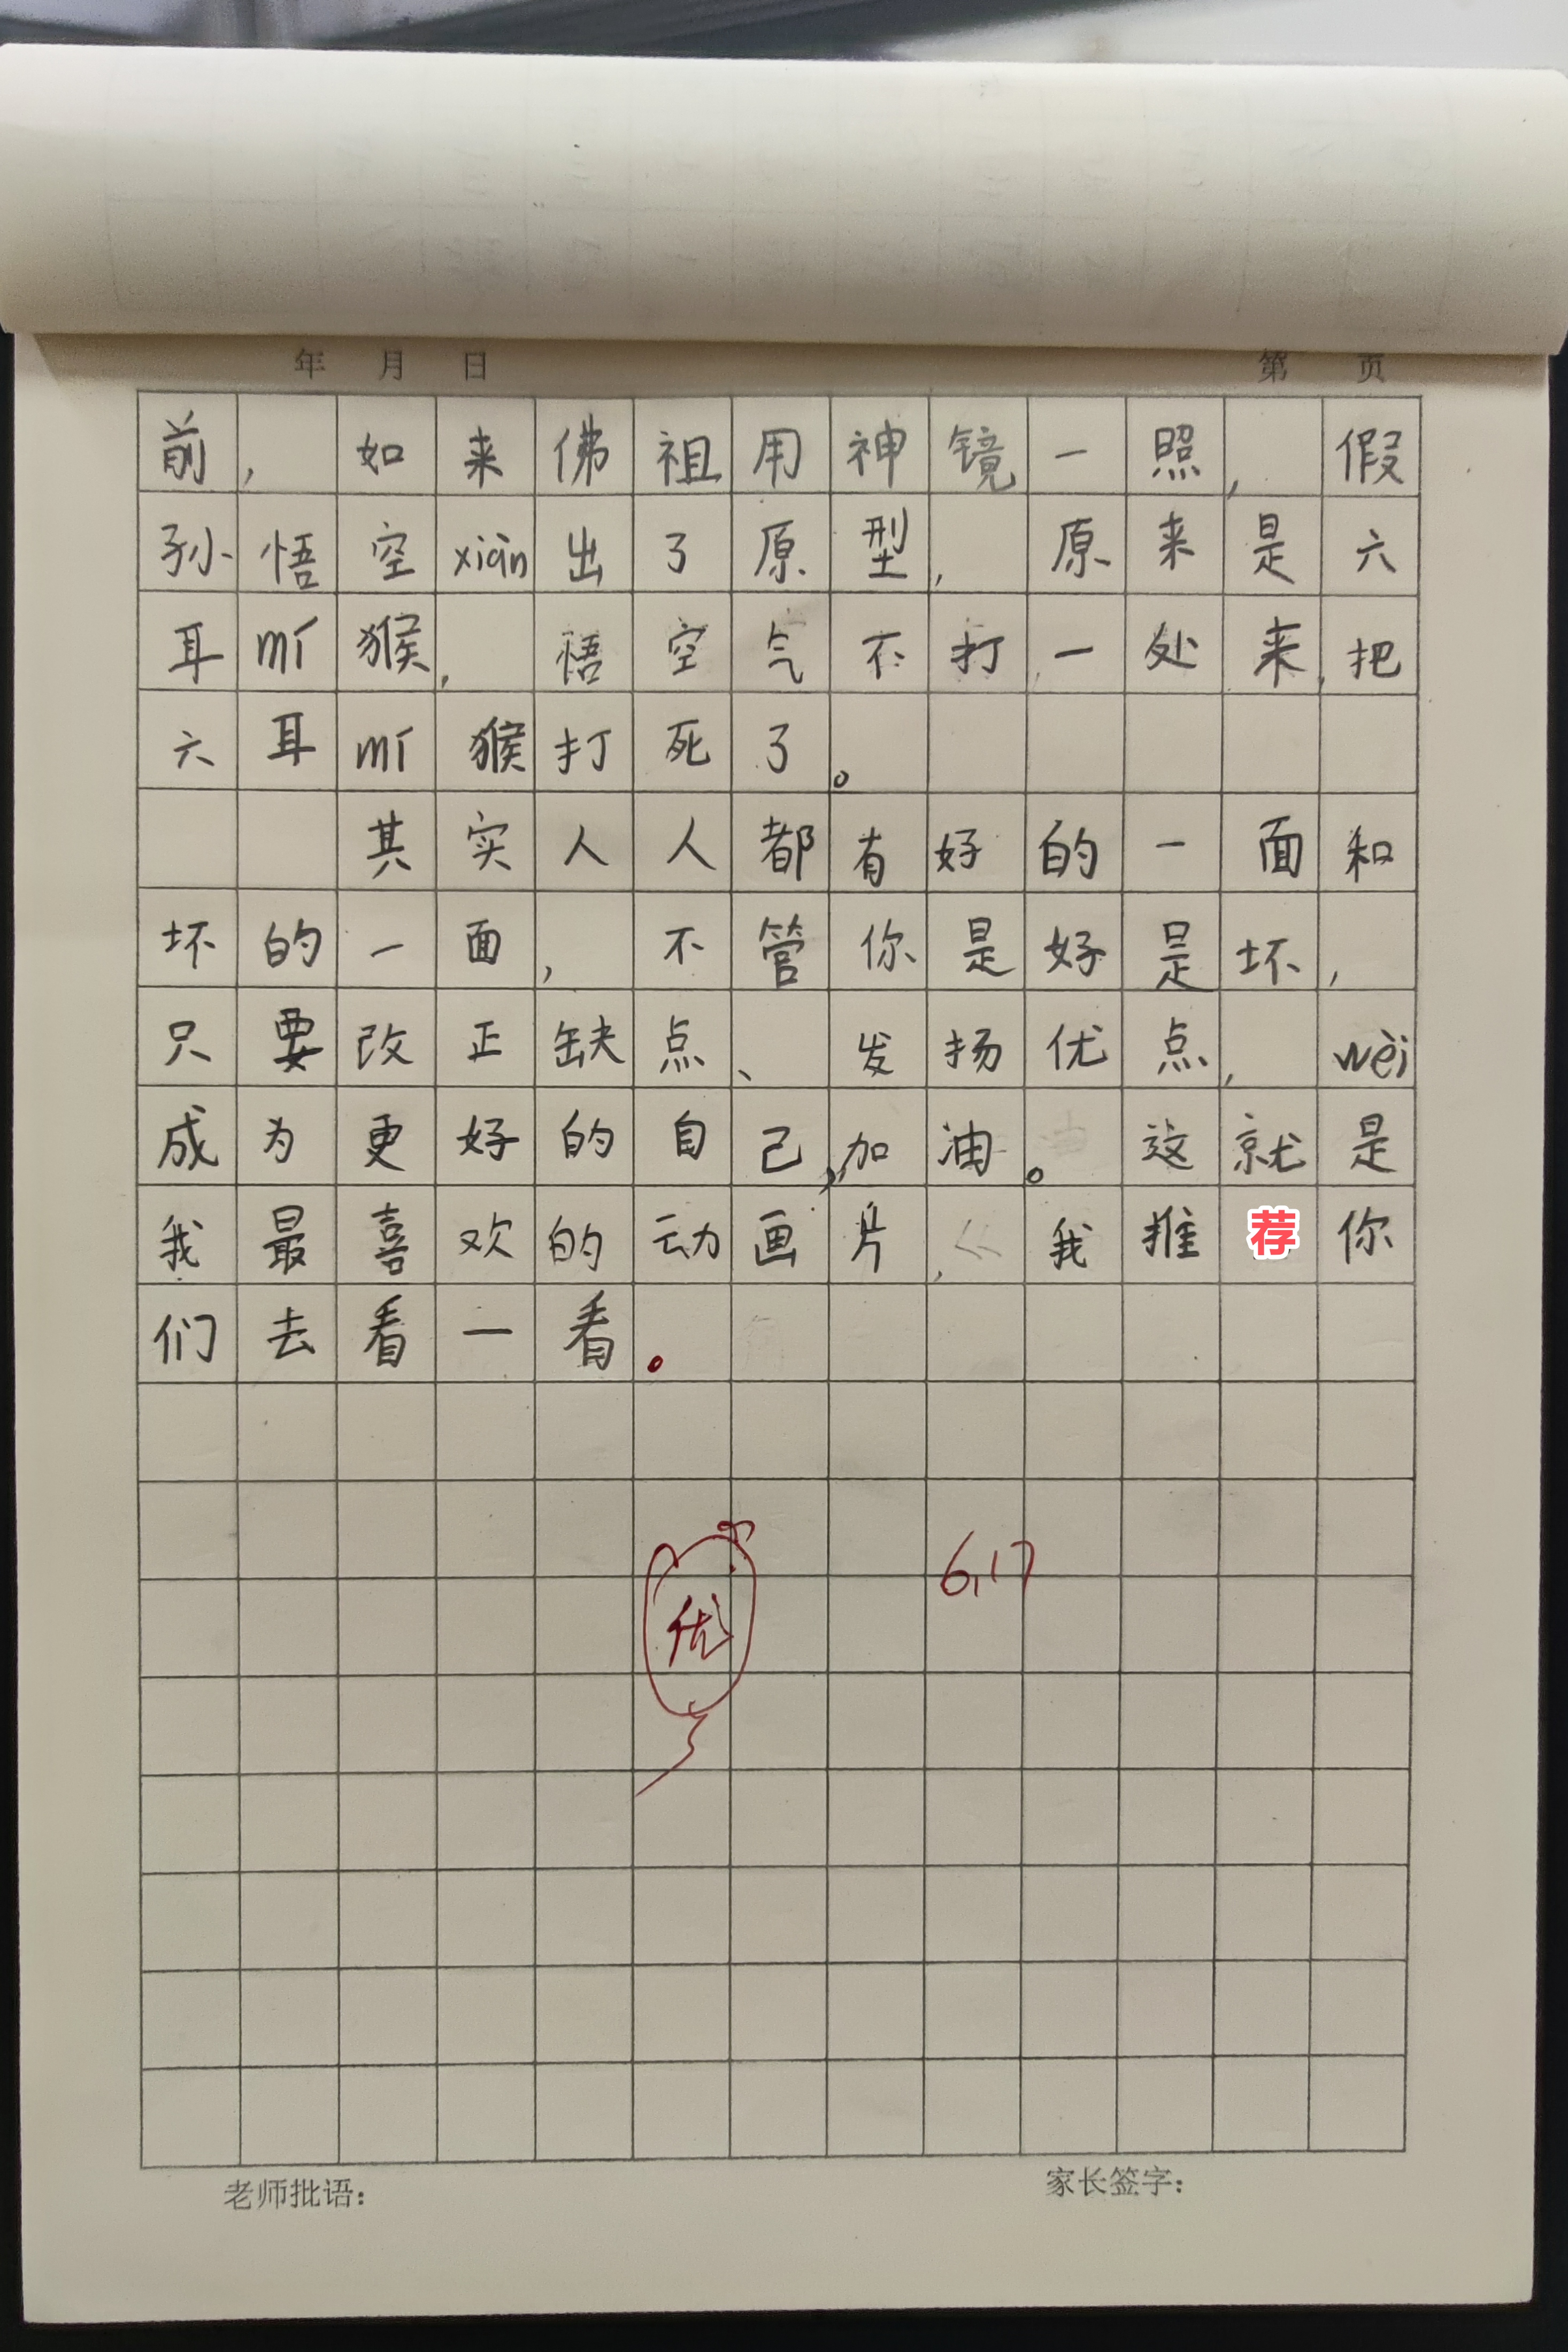 年 月 日 第 页
前，如来佛祖用神镜一照，假
孙悟空xiàn出了原型，原来是六
耳mí猴，悟空气不打一处来，把
六耳mí猴打死了。
其实人人都有好的一面和
坏的一面，不管你是好是坏，
只要改正缺点、发扬优点，wèi
成为更好的自己，加油。这就是
我最喜欢的动画片，我推荐你
们去看一看。
优 6.17
老师批语： 家长签字：